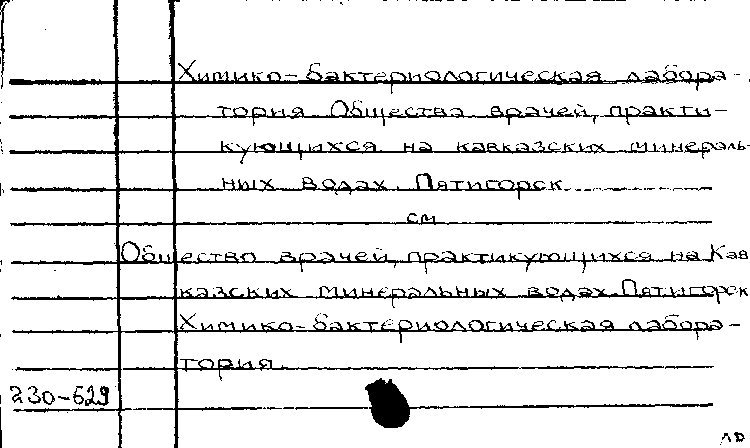 Химико-бактериологическая лабора-
тория Общества врачей, практи-
кующихся на кавказских минераль-
ных водах. Пятигорск.
см.
Общество врачей, практикующихся на Кав
казских минеральных водах. Пятигорск
Химико-бактериологическая лабора-
тория.
230-629